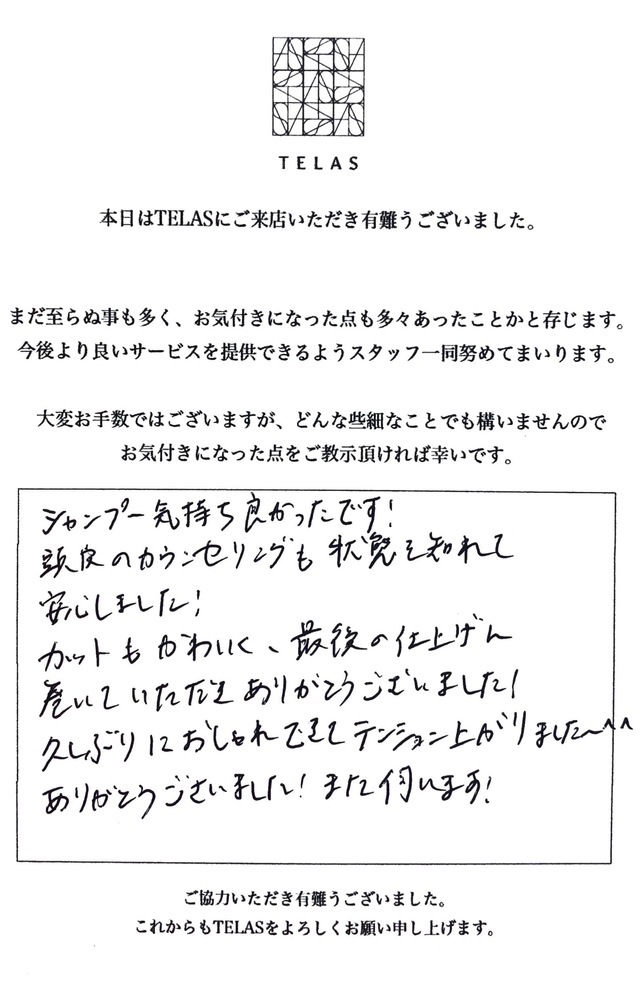 TELAS
本日はTELASにご来店いただき有難うございました。
まだ至らぬ事も多く、お気付きになった点も多々あったことかと存じます。
今後より良いサービスを提供できるようスタッフ一同努めてまいります。
大変お手数ではございますが、どんな些細なことでも構いませんので
お気付きになった点をご教示頂ければ幸いです。
シャンプー気持ち良かったです!
頭皮のカウンセリングも状態を知れて
安心しました!
カットもかわいく、最後の仕上げん
巻いていただきありがとうございました!
久しぶりにおしゃれできてテンション上がりました~^^
ありがとうございました!また伺います!
ご協力いただき有難うございました。
これからもTELASをよろしくお願い申し上げます。